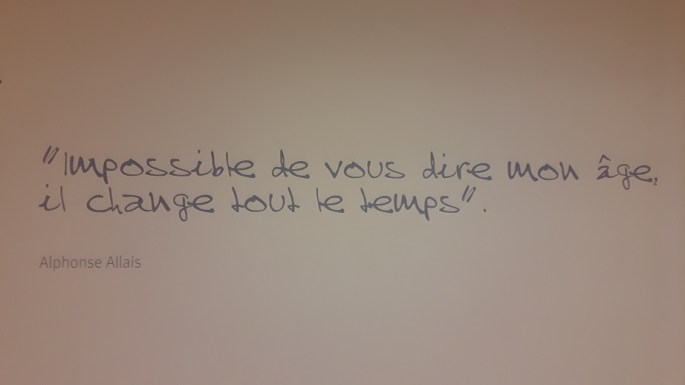 "Impossible de vous dire mon âge,
il change tout le temps".
Alphonse Allais